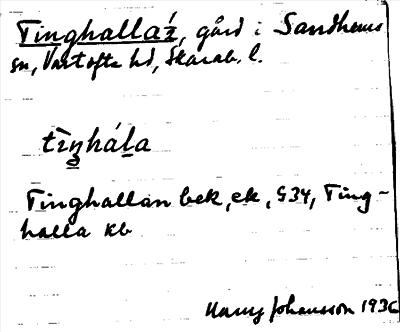 Tinghallaź, gård i Sandhems
sn, Vartofta hd, Skarab. l.
tīŋháḷa
Tinghallan bek, ek, G34, Ting-
halla kb
Harry Johansson 1936